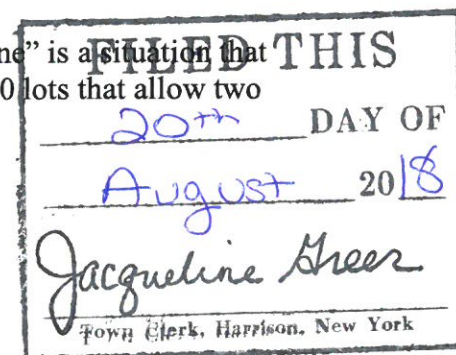 ne” is a situation that
0 lots that allow two
FILED THIS
20th DAY OF
August 2018
Jacqueline Greer
Town Clerk, Harrison, New York